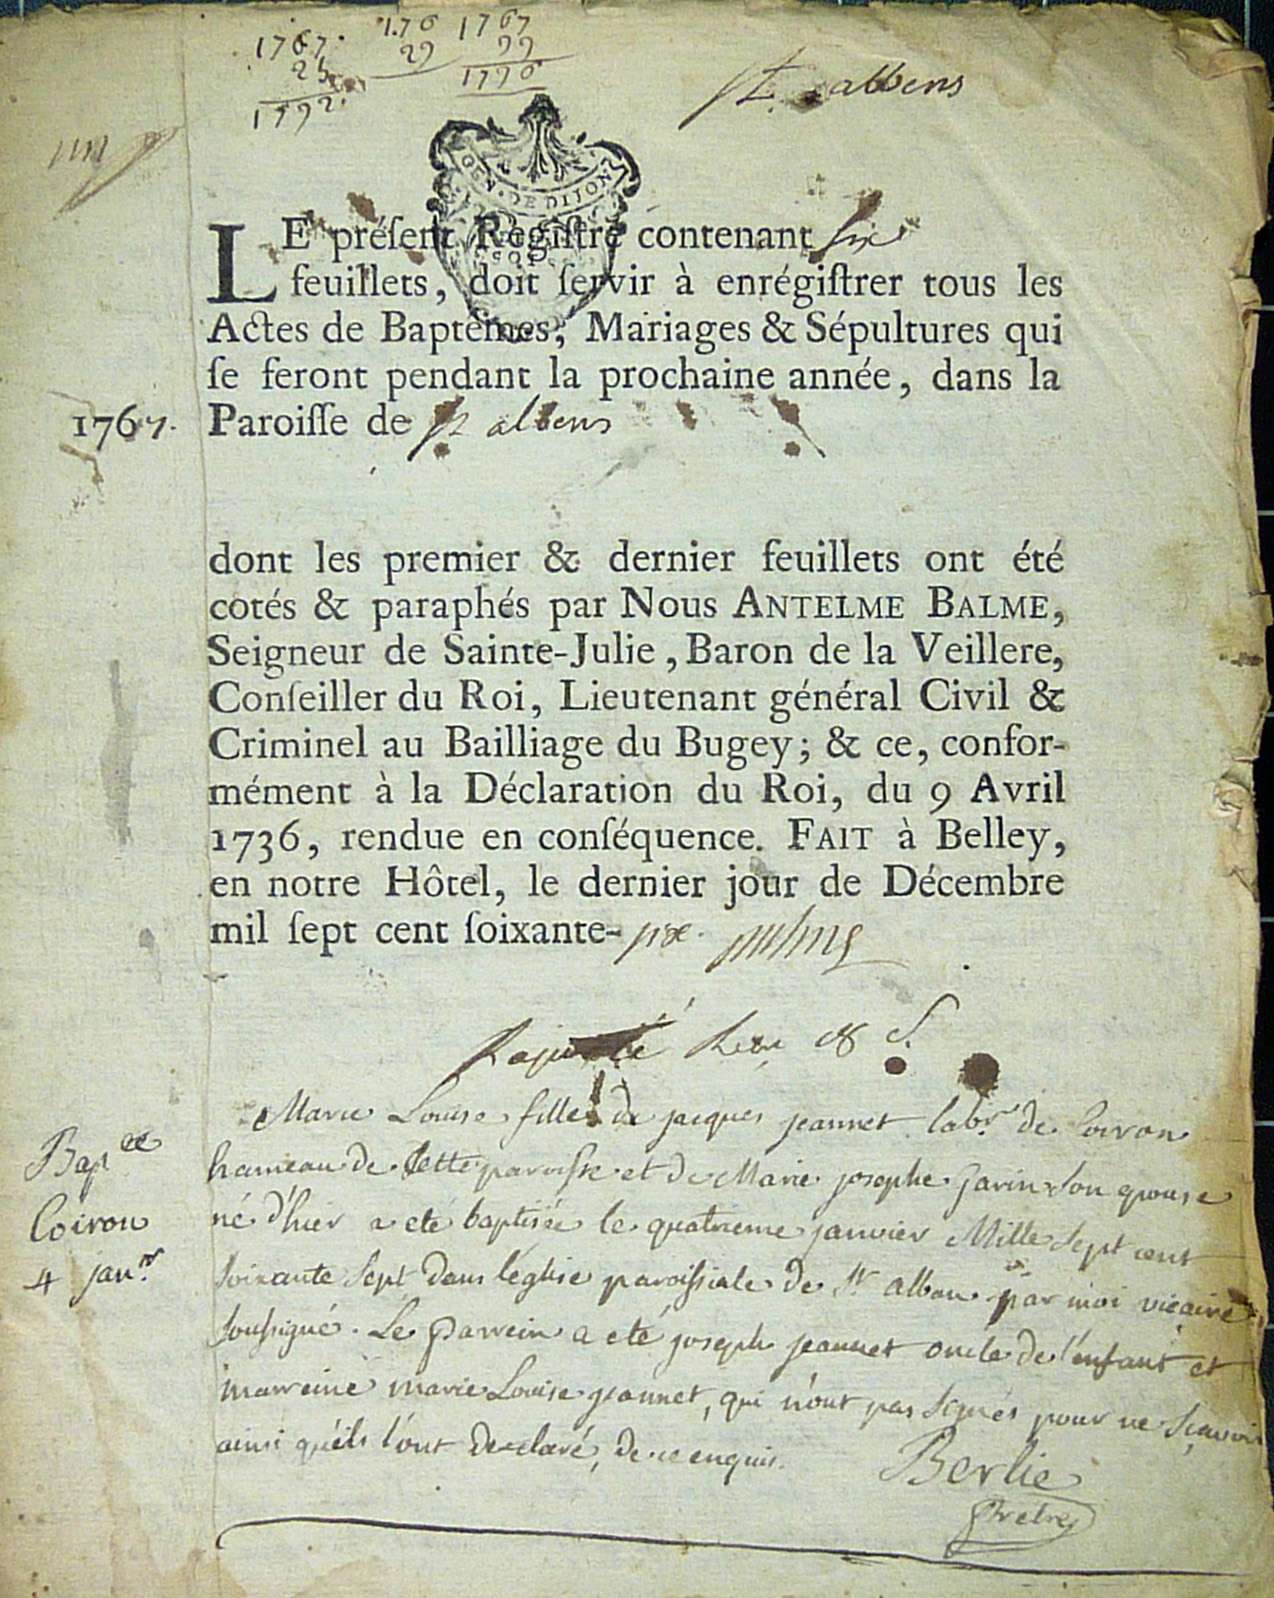 1767.
25
1792.
1.76
29
1767
99
1776
st albens
GEN. DE DIJON
LE préſent Regiſtre contenant six
feuillets, doit ſervir à enrégiſtrer tous les
Actes de Baptêmes, Mariages & Sépultures qui
ſe feront pendant la prochaine année, dans la
1767. Paroiſſe de st albens
dont les premier & dernier feuillets ont été
cotés & paraphés par Nous ANTELME BALME,
Seigneur de Sainte-Julie, Baron de la Veillere,
Conſeiller du Roi, Lieutenant général Civil &
Criminel au Bailliage du Bugey; & ce, confor-
mément à la Déclaration du Roi, du 9 Avril
1736, rendue en conſéquence. FAIT à Belley,
en notre Hôtel, le dernier jour de Décembre
mil ſept cent ſoixante-six.
Marie Louise fille de jacques jeannet labr. de Coiron
hameau de Cette paroisse et de Marie josephe Garin Son epouse
né d'hier a eté baptisée le quatrieme janvier Mille Sept cent
Soixante Sept dans l'eglise paroissiale de St alban par moi vicaire
Soussigné. Le Parrein a eté joseph jeannet oncle de l'enfant et
marreine marie Louise jeannet, qui n'ont pas Signés pour ne Sçavoir
ainsi qu'ils l'ont declaré, de ce enquis.
Bap ee
Coiron
4 janr.
Berlie
Pretre